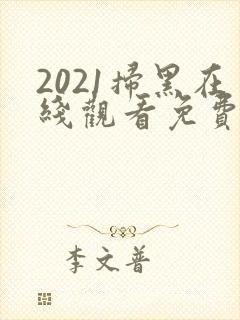 2021掃黑在
綫觀看免費
李文普